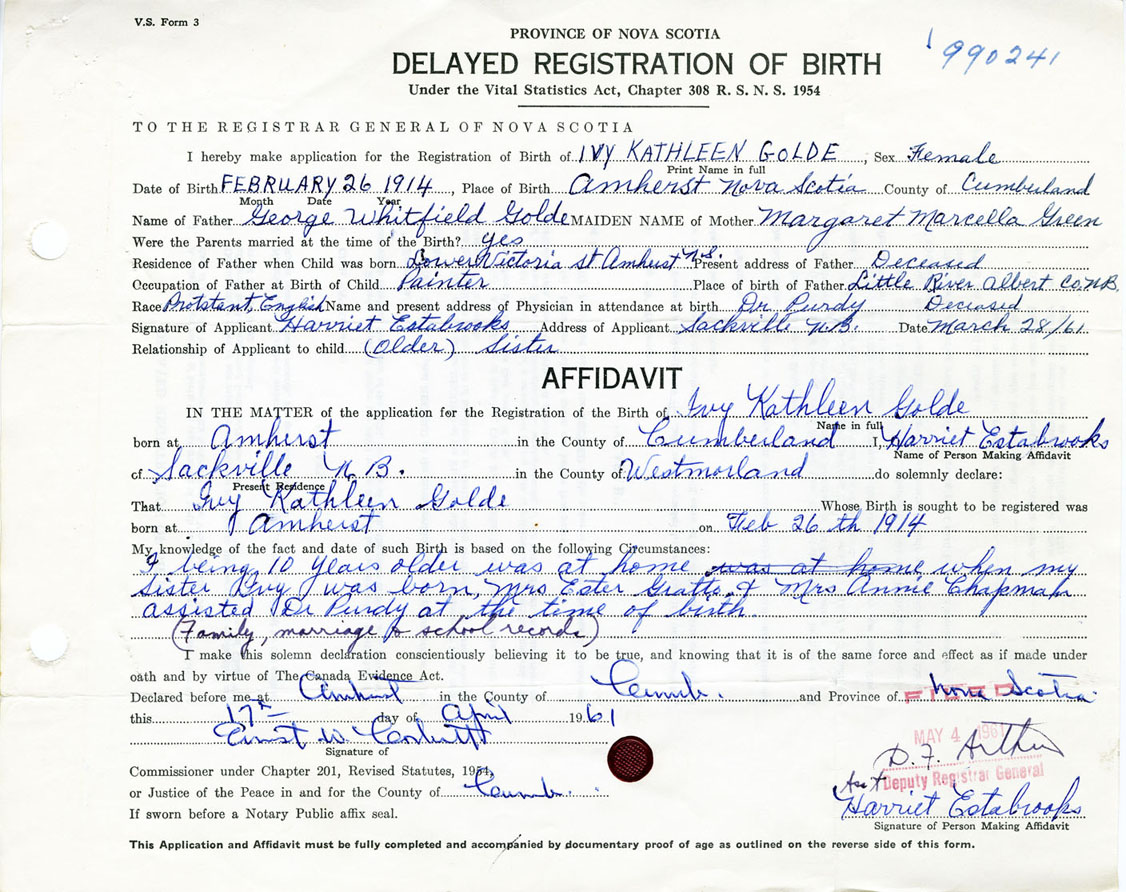 V.S. Form 3
PROVINCE OF NOVA SCOTIA
990241
DELAYED REGISTRATION OF BIRTH
Under the Vital Statistics Act, Chapter 308 R. S. N. S. 1954
TO THE REGISTRAR GENERAL OF NOVA SCOTIA
I hereby make application for the Registration of Birth of IVY KATHLEEN GOLDE, Sex Female
Print Name in full
Date of Birth FEBRUARY 26 1914, Place of Birth Amherst Nova Scotia County of Cumberland
Month Date Year
Name of Father George Whitfield Golde MAIDEN NAME of Mother Margaret Marcella Green
Were the Parents married at the time of the Birth? yes
Residence of Father when Child was born Lower Victoria St Amherst N.S. Present address of Father Deceased
Occupation of Father at Birth of Child Painter Place of birth of Father Little River Albert Co. N.B.
Race Protstant, English Name and present address of Physician in attendance at birth Dr Purdy Deceased
Signature of Applicant Harriet Estabrooks Address of Applicant Sackville N.B. Date March 28/61
Relationship of Applicant to child (older) Sister
AFFIDAVIT
IN THE MATTER of the application for the Registration of the Birth of Ivy Kathleen Golde
Name in full
born at Amherst in the County of Cumberland I, Harriet Estabrooks
Name of Person Making Affidavit
of Sackville N.B. in the County of Westmorland do solemnly declare:
Present Residence
That Ivy Kathleen Golde Whose Birth is sought to be registered was
born at Amherst on Feb 26th 1914
My knowledge of the fact and date of such Birth is based on the following Circumstances:
I being 10 years older was at home was at home when my
sister Ivy was born, Mrs Ester Gratto & Mrs Annie Chapman
assisted Dr Purdy at the time of birth
(Family, marriage & school records)
I make this solemn declaration conscientiously believing it to be true, and knowing that it is of the same force and effect as if made under
oath and by virtue of The Canada Evidence Act.
Declared before me at Amherst in the County of Cumb. and Province of Nova Scotia
FILED
this 17th day of April 1961
MAY 4 1961
D. F. Arthur
Signature of
Commissioner under Chapter 201, Revised Statutes, 1954,
Deputy Registrar General
or Justice of the Peace in and for the County of Cumb.
Harriet Estabrooks
If sworn before a Notary Public affix seal.
Signature of Person Making Affidavit
This Application and Affidavit must be fully completed and accompanied by documentary proof of age as outlined on the reverse side of this form.